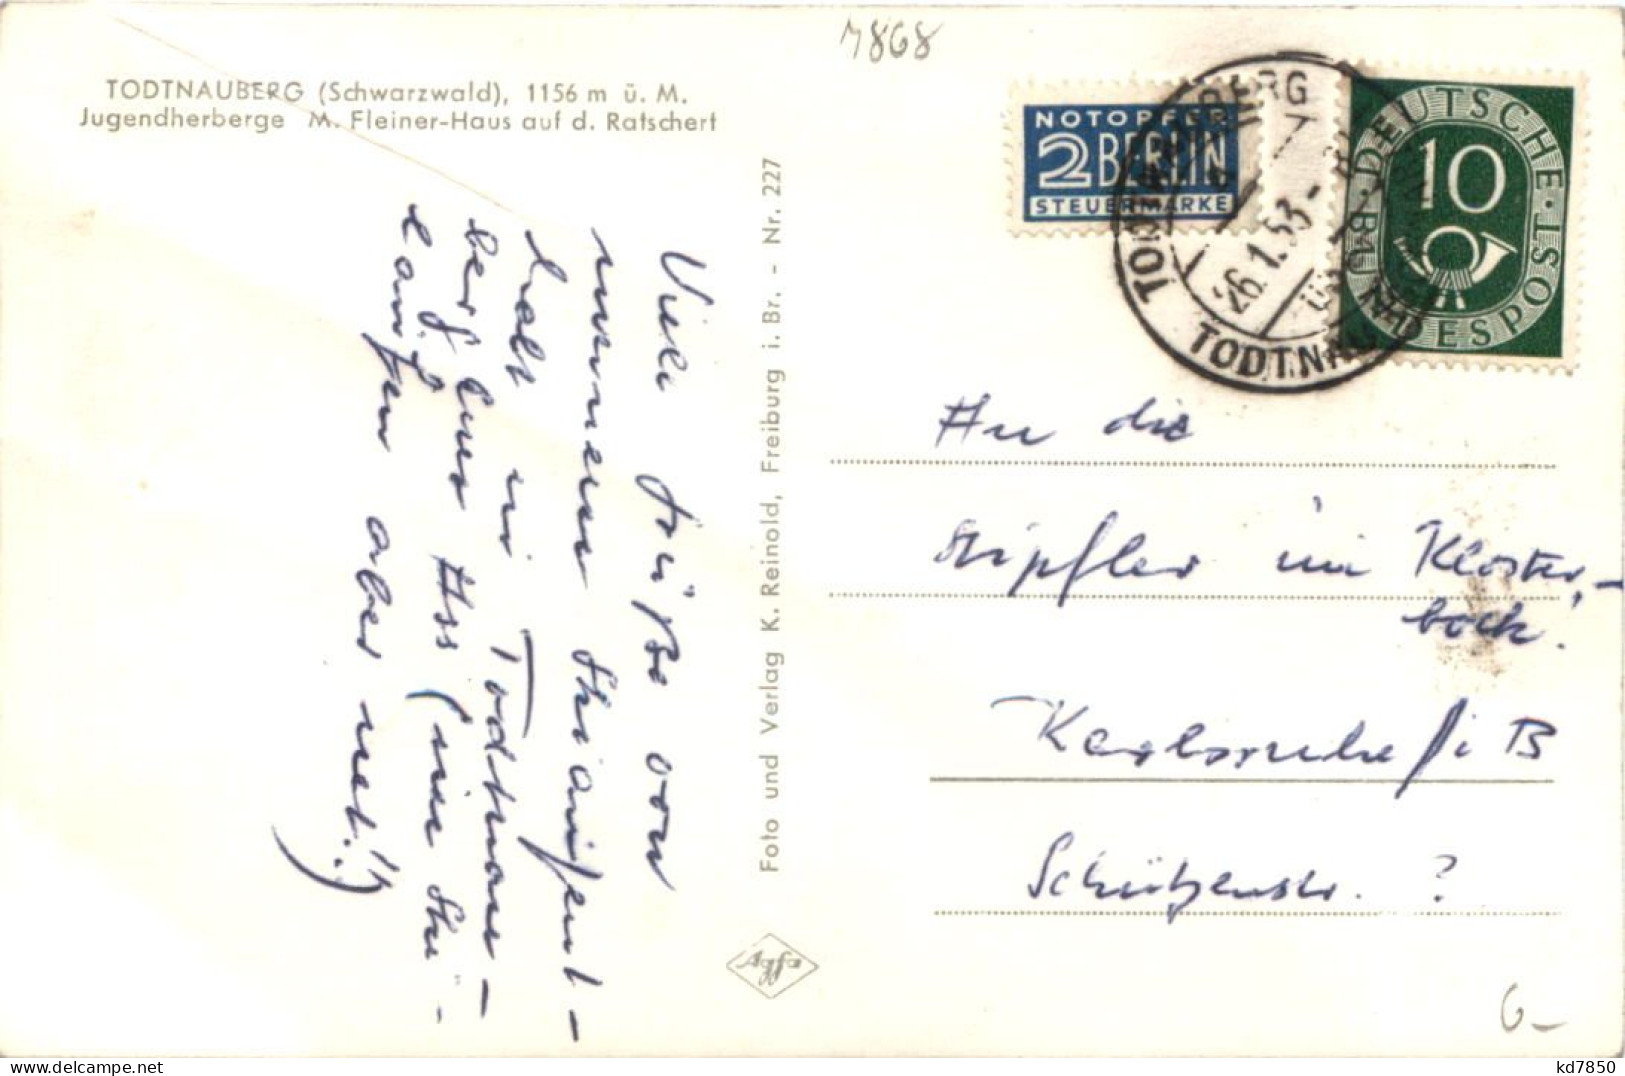 7868
TODTNAUBERG (Schwarzwald), 1156 m ü. M.
Jugendherberge M. Fleiner-Haus auf d. Ratschert
NOTOPFER
2 BERLIN
STEUERMARKE
TODTNAUBERG
26.1.53
ÜBER
TODTNAU
DEUTSCHE BUNDESPOST
10
Viele Grüße von
meinem Skiaufent-
halt in Todtnau-
berg
laufen aber net!!)
Foto und Verlag K. Reinold, Freiburg i. Br. - Nr. 227
Agfa
An die
Stipfler im Kloster-
bock.
Karlsruhe / i B
Schützenstr. ?
6-
kd7850